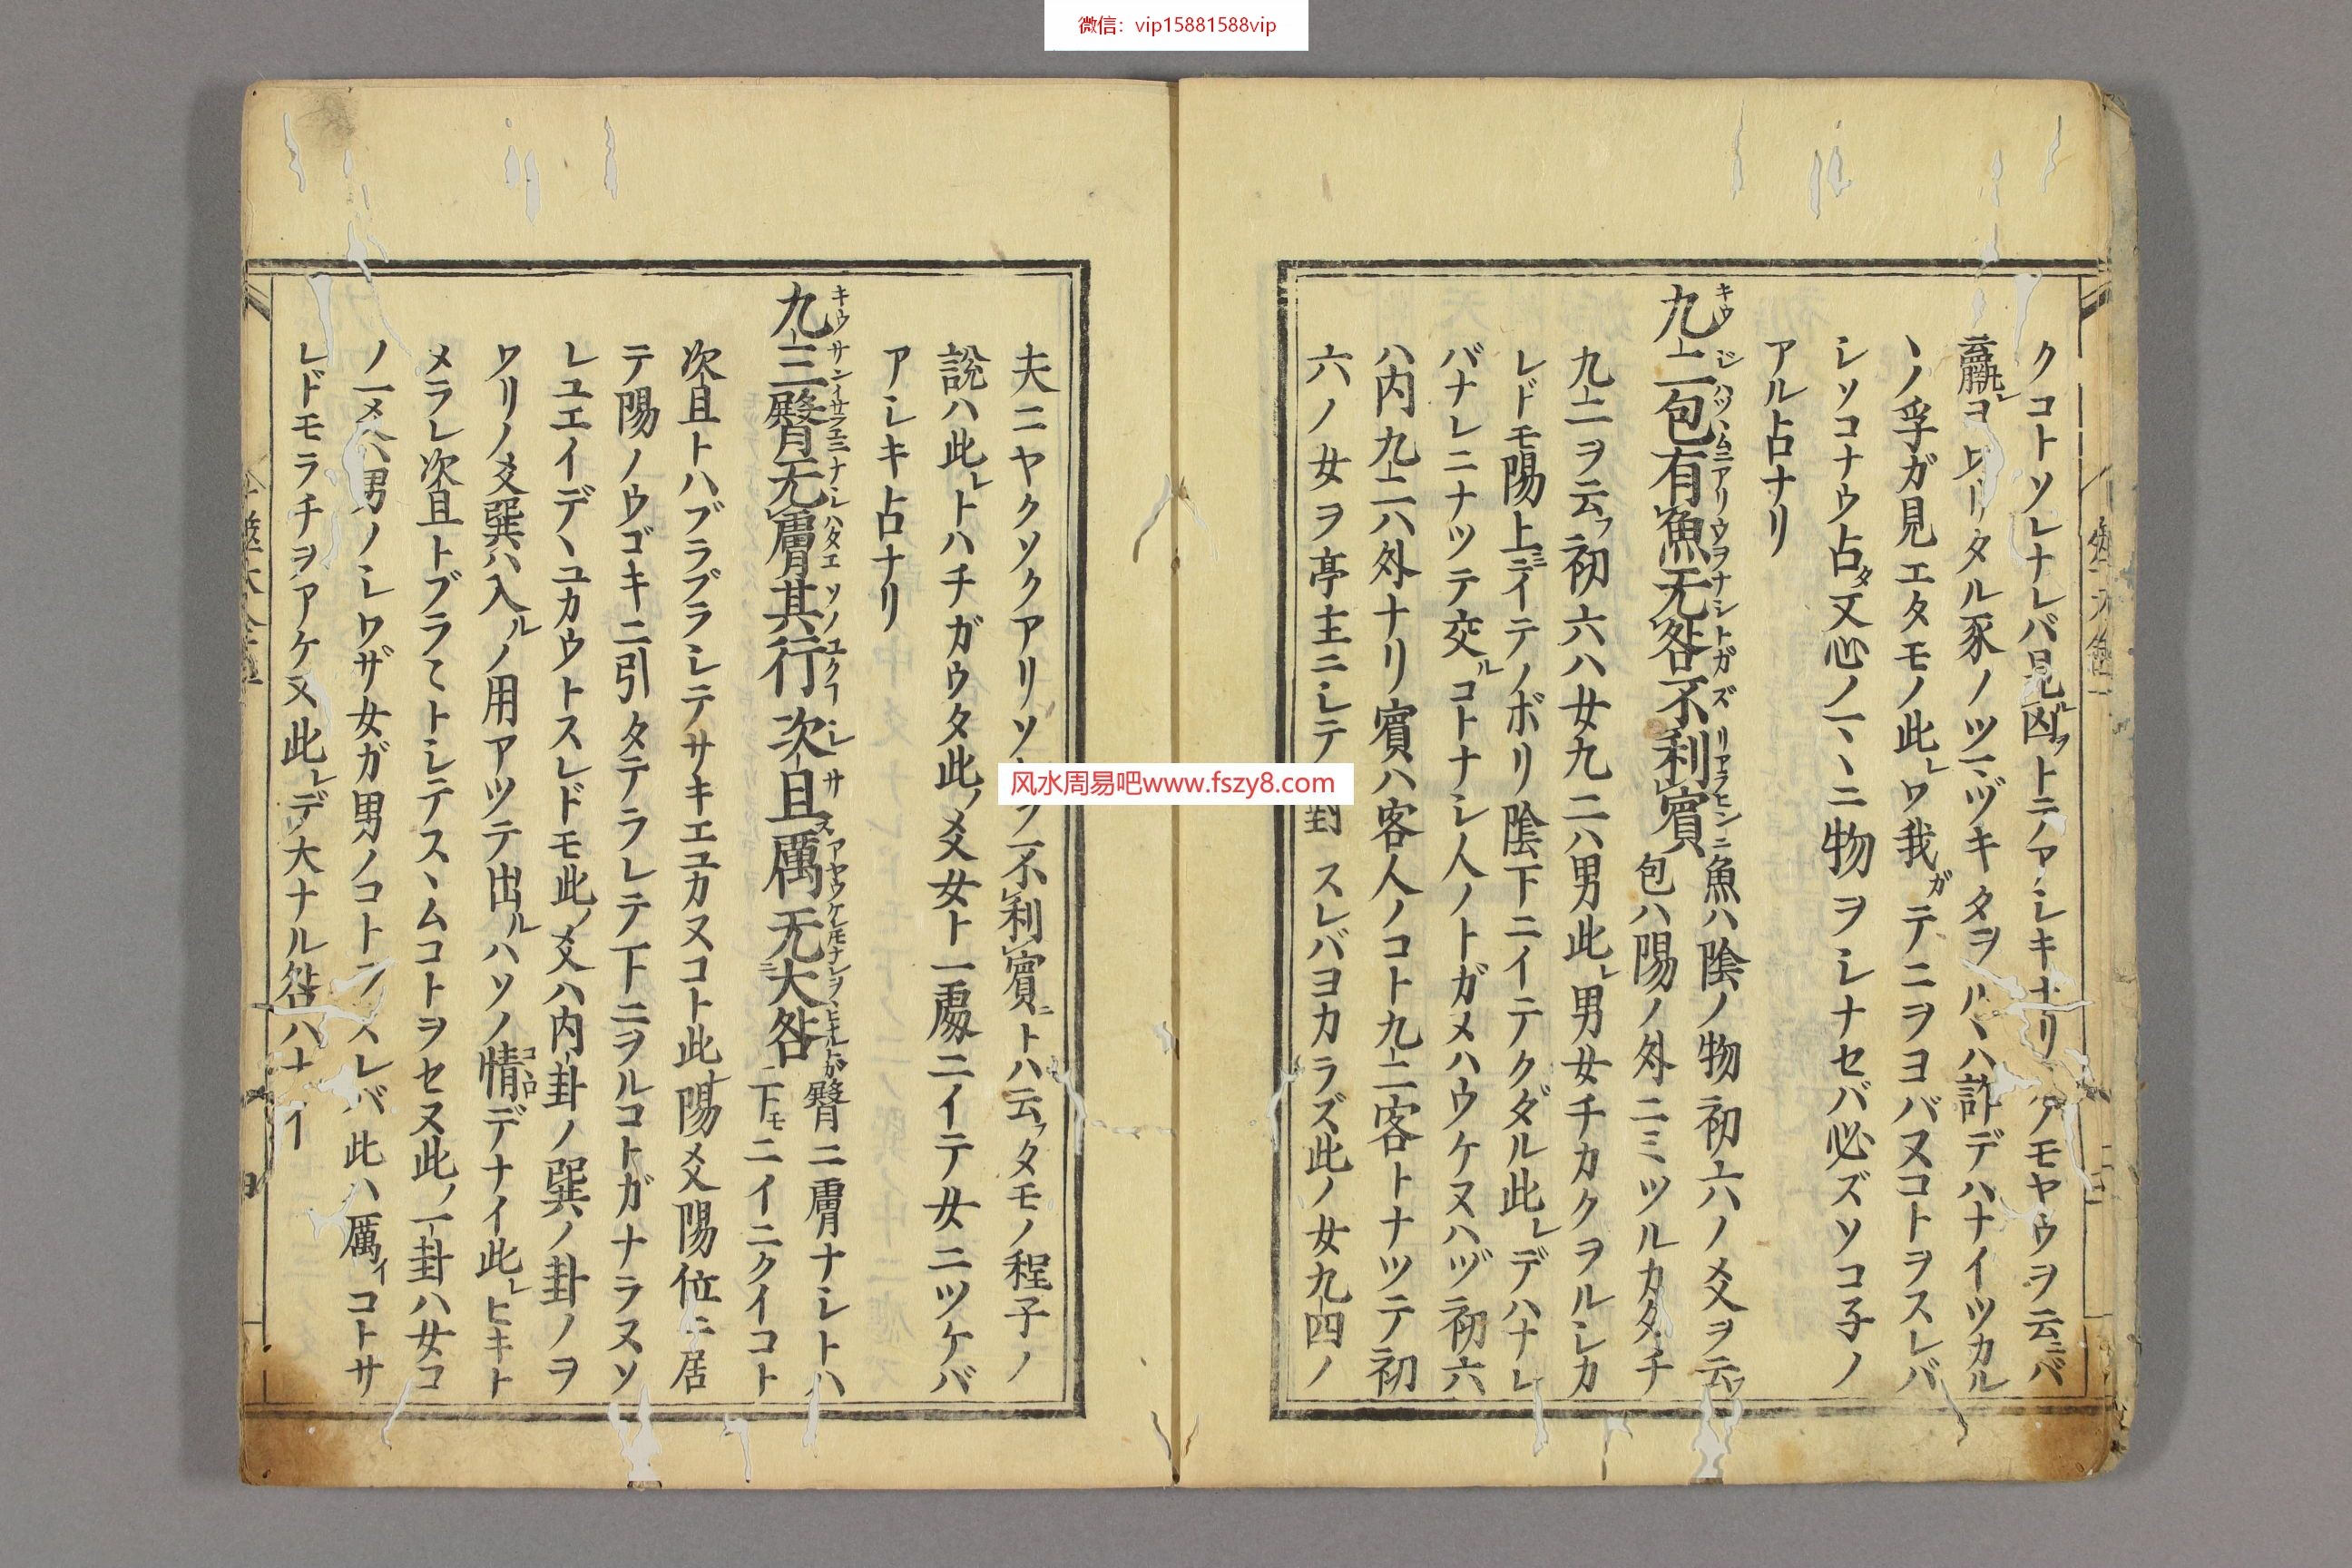 微信：vip15881588vip
クコトソレナレバ見凶トニアシキナリアモヤウヲ云バ
羸コタル豕ノツヅキタヲハ詐デハナイツカル
ヽノ孚ガ見エタモノ此レワ我ガテニヲヨバヌコトヲスレバ
シソコナウ占タ又心ノ一ヽニ物ヲシナセバ必ズソコ子ノ
アル占ナリ
九二包有魚无咎不利賓
魚ハ陰ノ物初六ノ爻ヲ云フ
包ハ陽ノ外ニミツルカタチ
九二ヲ云フ初六ハ女九二ハ男此レ男女チカクヲルシカ
レドモ陽上ニイテノボリ陰下ニイテクダル此レデハナレ
バナレニナツテ交ルコトナシ人ノトガメハウケヌハヅ初六
ハ内九二ハ外ナリ賓ハ客人ノコト九二客トナツテ初
六ノ女ヲ亭主ニシテ對スレバヨカラズ此ノ女九四ノ
夫ニヤクソクアリソ不利賓ニトハ云フタモノ程子ノ
說ハ此レトハチガウタ此ノ爻女ト一處ニイテ女ニツケバ
アシキ占ナリ
九三臀无膚其行次且厲无大咎
臀ニ膚ナシトハ
下モニイニクイコト
次且トハブラブラシテサキエユカヌコト此陽爻陽位ニ居
テ陽ノウゴキニ引タテラレテ下ニヲルコトガナラヌソ
レユエイデヽユカウトスレドモ此ノ爻ハ内卦ノ巽ノ卦ノヲ
ワリノ爻巽ハ入ルノ用アツテ出ルハソノ情デナイ此レヒキト
メラレ次且トブラ〱トシテスヽムコトヲセヌ此ノ一卦ハ女コ
ノ一メハ男ノシワザ女ガ男ノコトヲスレバ此ハ厲イコトサ
レドモラチヲアケヌ此レデ大ナル咎ハナイ
风水周易吧www.fszy8.com